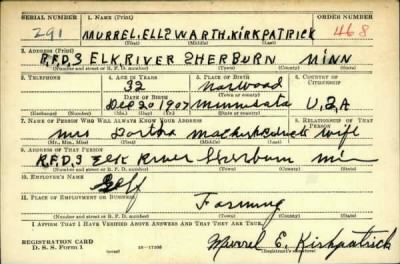 SERIAL NUMBER 1. NAME (Print) ORDER NUMBER
291 MURREL, ELLSWARTH, KIRKPATRICK 468
(First) (Middle) (Last)
2. ADDRESS (Print)
R.F.D, 3 ELK, RIVER SHERBURN MINN
(Number and street or R. F. D. number) (Town) (County) (State)
3. TELEPHONE 4. AGE IN YEARS 5. PLACE OF BIRTH 6. COUNTRY OF CITIZENSHIP
32 Norwood
DATE OF BIRTH (Town or county)
Dec 20 1907 Minnesota U,S,A
(Mo.) (Day) (Yr.) (State or country)
7. NAME OF PERSON WHO WILL ALWAYS KNOW YOUR ADDRESS 8. RELATIONSHIP OF THAT PERSON
Mrs Dortha Mae Kirkpatrick wife
(Mr., Mrs., Miss) (First) (Middle) (Last)
9. ADDRESS OF THAT PERSON
R.F.D, 3 Elk River Sherburn Min
(Number and street or R. F. D. number) (Town) (County) (State)
10. EMPLOYER'S NAME
Self
11. PLACE OF EMPLOYMENT OR BUSINESS
Farming
(Number and street or R. F. D. number) (Town) (County) (State)
I AFFIRM THAT I HAVE VERIFIED ABOVE ANSWERS AND THAT THEY ARE TRUE.
REGISTRATION CARD
D. S. S. Form 1 16—17105 Murrel E. Kirkpatrick
(Registrant's signature)